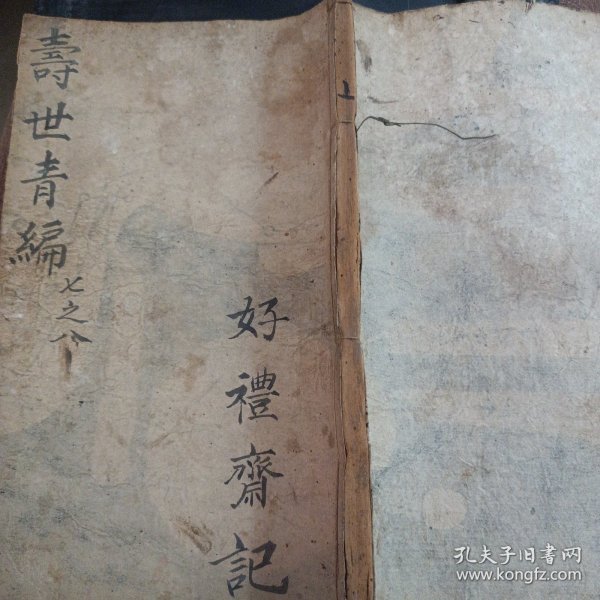 壽世青編
七之八
好禮齋記
上
孔夫子旧書网
www.kongfz.com